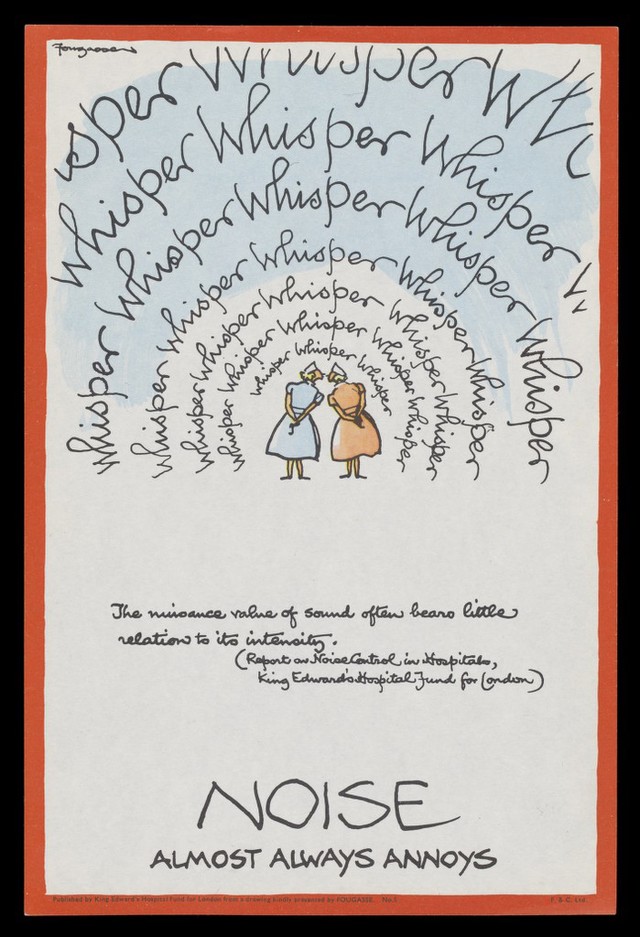 Fougasse
sper Whisper Wh
Whisper Whisper Whisper W
Whisper Whisper Whisper Whisper Whisper
Whisper Whisper Whisper Whisper Whisper
Whisper Whisper Whisper Whisper Whisper
Whisper Whisper Whisper Whisper Whisper
whisper whisper whisper
The nuisance value of sound often bears little
relation to its intensity.
(Report on Noise Control in Hospitals,
King Edward's Hospital Fund for London)
NOISE
ALMOST ALWAYS ANNOYS
Published by King Edward's Hospital Fund for London from a drawing kindly presented by FOUGASSE. No.5
F. & C. Ltd.